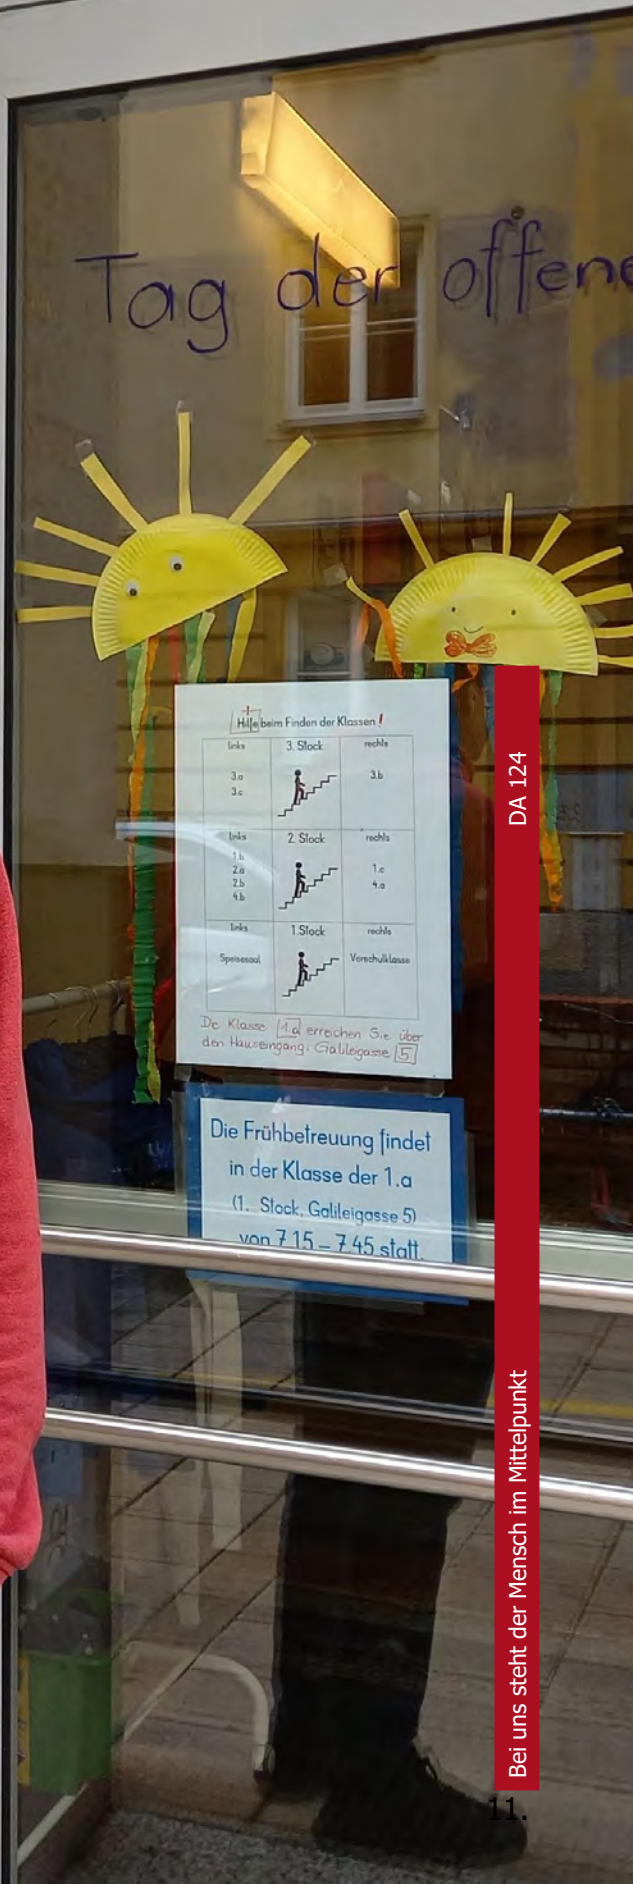 Tag der offene
Hilfe beim Finden der Klassen!
links 3. Stock rechts
3.a 3.b
3.c
links 2. Stock rechts
1.b
2.a 1.c
2.b 4.a
4.b
links 1. Stock rechts
Speisesaal Vorschulklasse
De Klasse 1a erreichen Sie über
den Hauseingang: Galileigasse 5
Die Frühbetreuung findet
in der Klasse der 1.a
(1. Stock, Galileigasse 5)
von 7.15 – 7.45 statt.
DA 124
Bei uns steht der Mensch im Mittelpunkt
11.